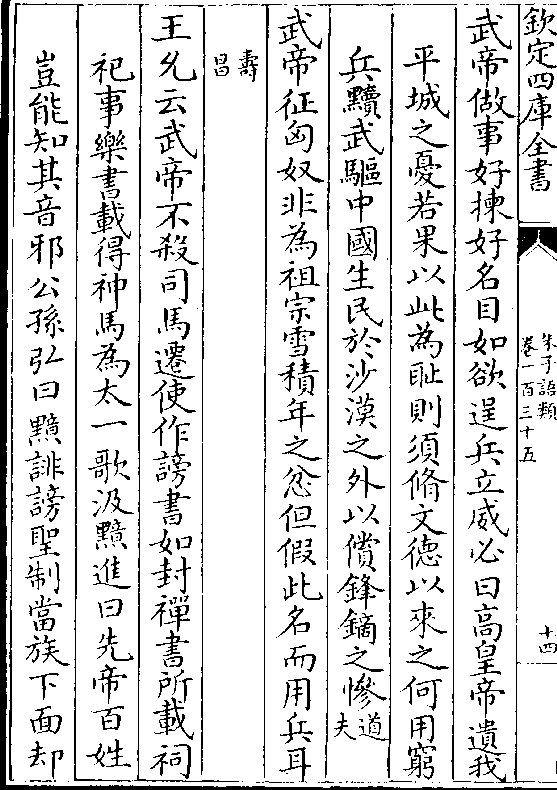 欽定四庫全書
朱子語類
卷一百三十五
十四
武帝做事好揀好名目如欲逞兵立威必曰高皇帝遺我
平城之憂若果以此為恥則須脩文德以來之何用窮
兵黷武驅中國生民於沙漠之外以償鋒鏑之慘道夫
武帝征匈奴非為祖宗雪積年之忿但假此名而用兵耳
壽昌
王允云武帝不殺司馬遷使作謗書如封禪書所載祠
祀事樂書載得神馬為太一歌汲黯進曰先帝百姓
豈能知其音邪公孫弘曰黯誹謗聖制當族下面却